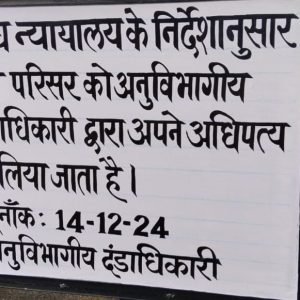 न्यायालय के निर्देशानुसार
परिसर को अनुविभागीय
द्वारा अपने अधिपत्य
लिया जाता है।
14-12-24
दंडाधिकारी